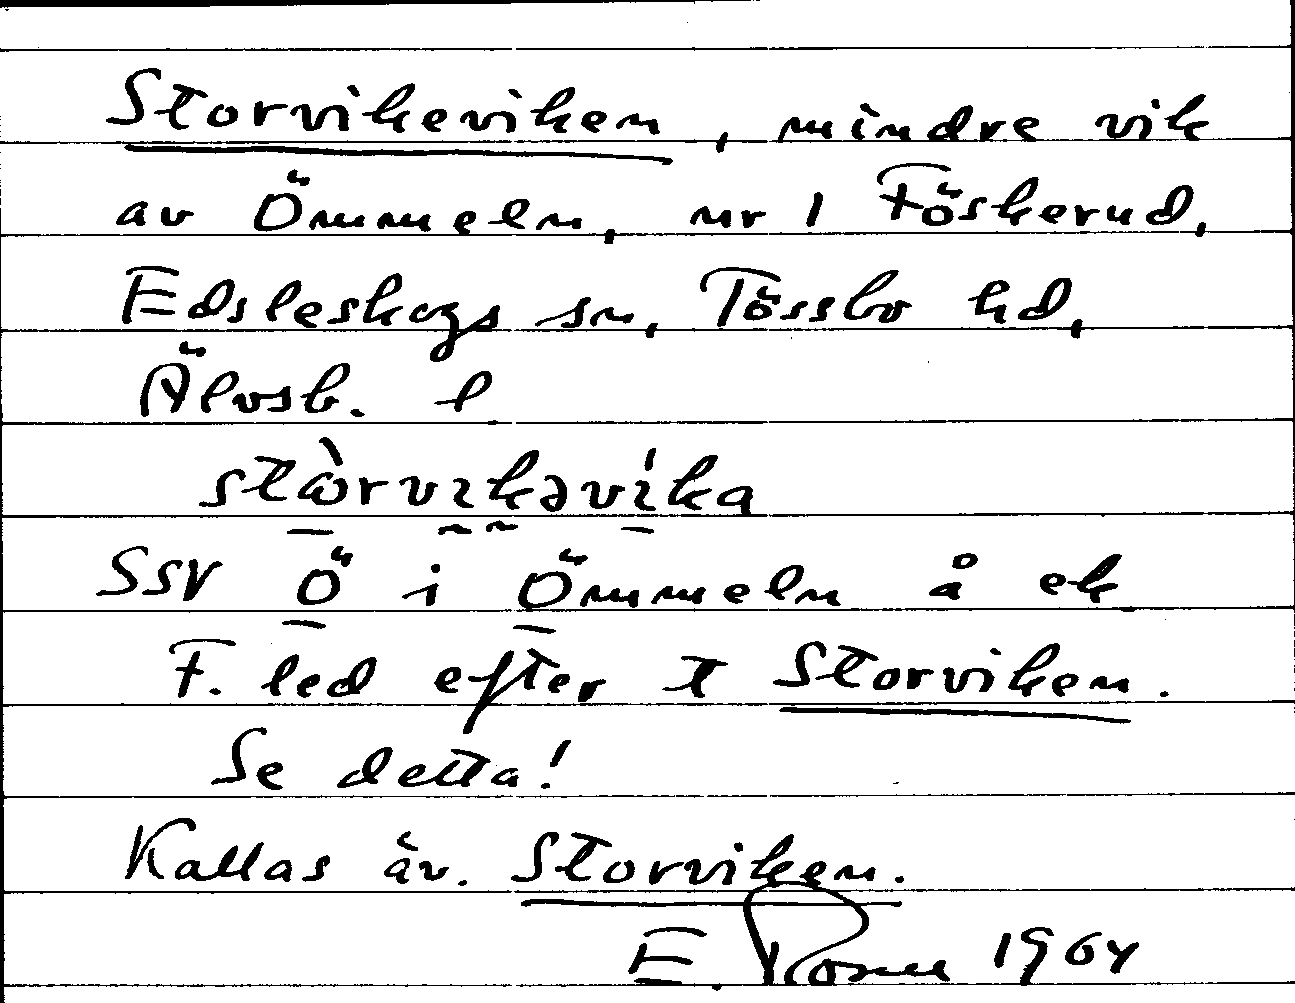 Storvikeviken, mindre vik
av Ömmeln, nr 1 Föskerud,
Edsleskogs sn, Tössbo hd,
Älvsb. l
stὼrvıkəvı́ka
SSV Ö i Ömmeln å ek
F. led efter t Storviken.
Se detta!
Kallas äv. Storviken.
E. 1964